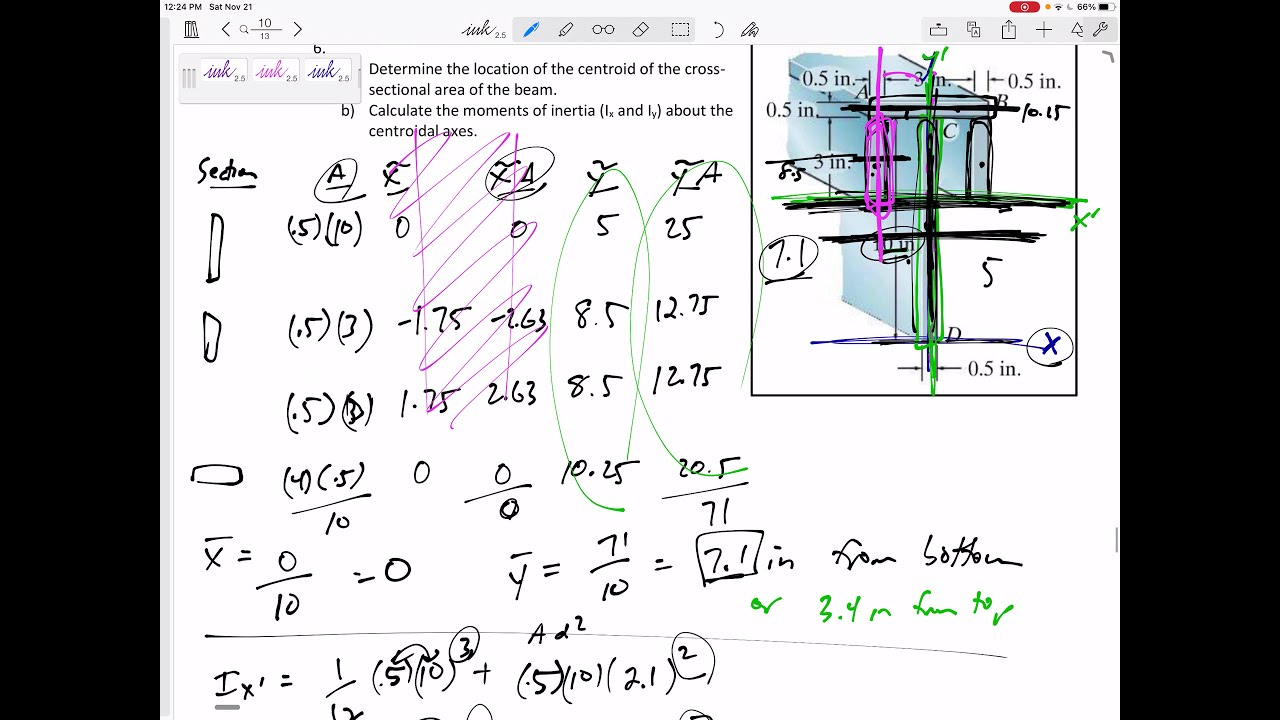 12:24 PM Sat Nov 21
66%
10
13
ink 2.5
6.
ink 2.5 ink 2.5 ink 2.5
Determine the location of the centroid of the cross-
sectional area of the beam.
b) Calculate the moments of inertia (Ix and Iy) about the
centroidal axes.
Section A x̃ x̃A ỹ ỹA
(.5)(10) 0 0 5 25
(.5)(3) -1.75 -2.63 8.5 12.75
(.5)(3) 1.75 2.63 8.5 12.75
(4)(.5) 0 0 10.25 20.5
10 0 71
x̄ = 0/10 = 0 ȳ = 71/10 = 7.1 in from bottom
or 3.4 in from top
Ad²
Ix' = 1/12 (.5)(10)³ + (.5)(10)(2.1)²
y'
0.5 in. 3 in. 0.5 in.
A B
0.5 in. 10.25
C
3 in.
8.5
x'
7.1 10 in
5
D x
0.5 in.